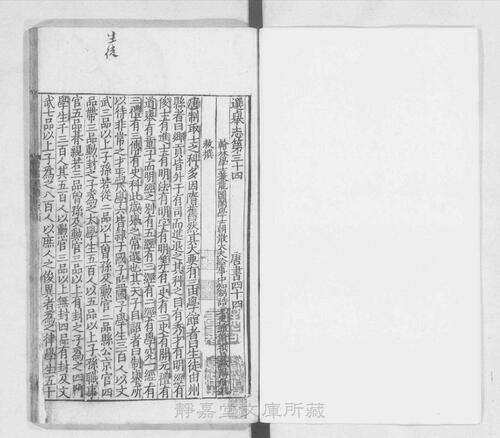 生徒
選舉志第三十四
唐書四十四
翰林學士兼龍圖閣學士朝散大夫給事中知制誥
敕撰
唐制取士之科多因隋舊然其大要有三由學館者曰生徒由州
縣者曰鄉貢皆升于有司而進退之其科之目有秀才有明經有
俊士有進士有明法有明字有明筭有一史有三史有開元禮有
道舉有童子而明經之別有五經有三經有二經有學究一經有
三禮有三傳有史科此歲舉之常選也其天子自詔者曰制舉所
以待非常之才焉凡學六皆隸于國子監國子學生三百人以文
武三品以上子孫若從二品以上曾孫及勳官二品縣公京官四
品帶三品勳封之子爲之太學生五百人以五品以上子孫職事
官五品朞親若三品曾孫及勳官三品以上有封之子爲之四門
學生千三百人其五百人以勳官三品以上無封四品有封及文
武七品以上子爲之八百人以庶人之俊異者爲之律學生五十
靜嘉堂文庫所藏